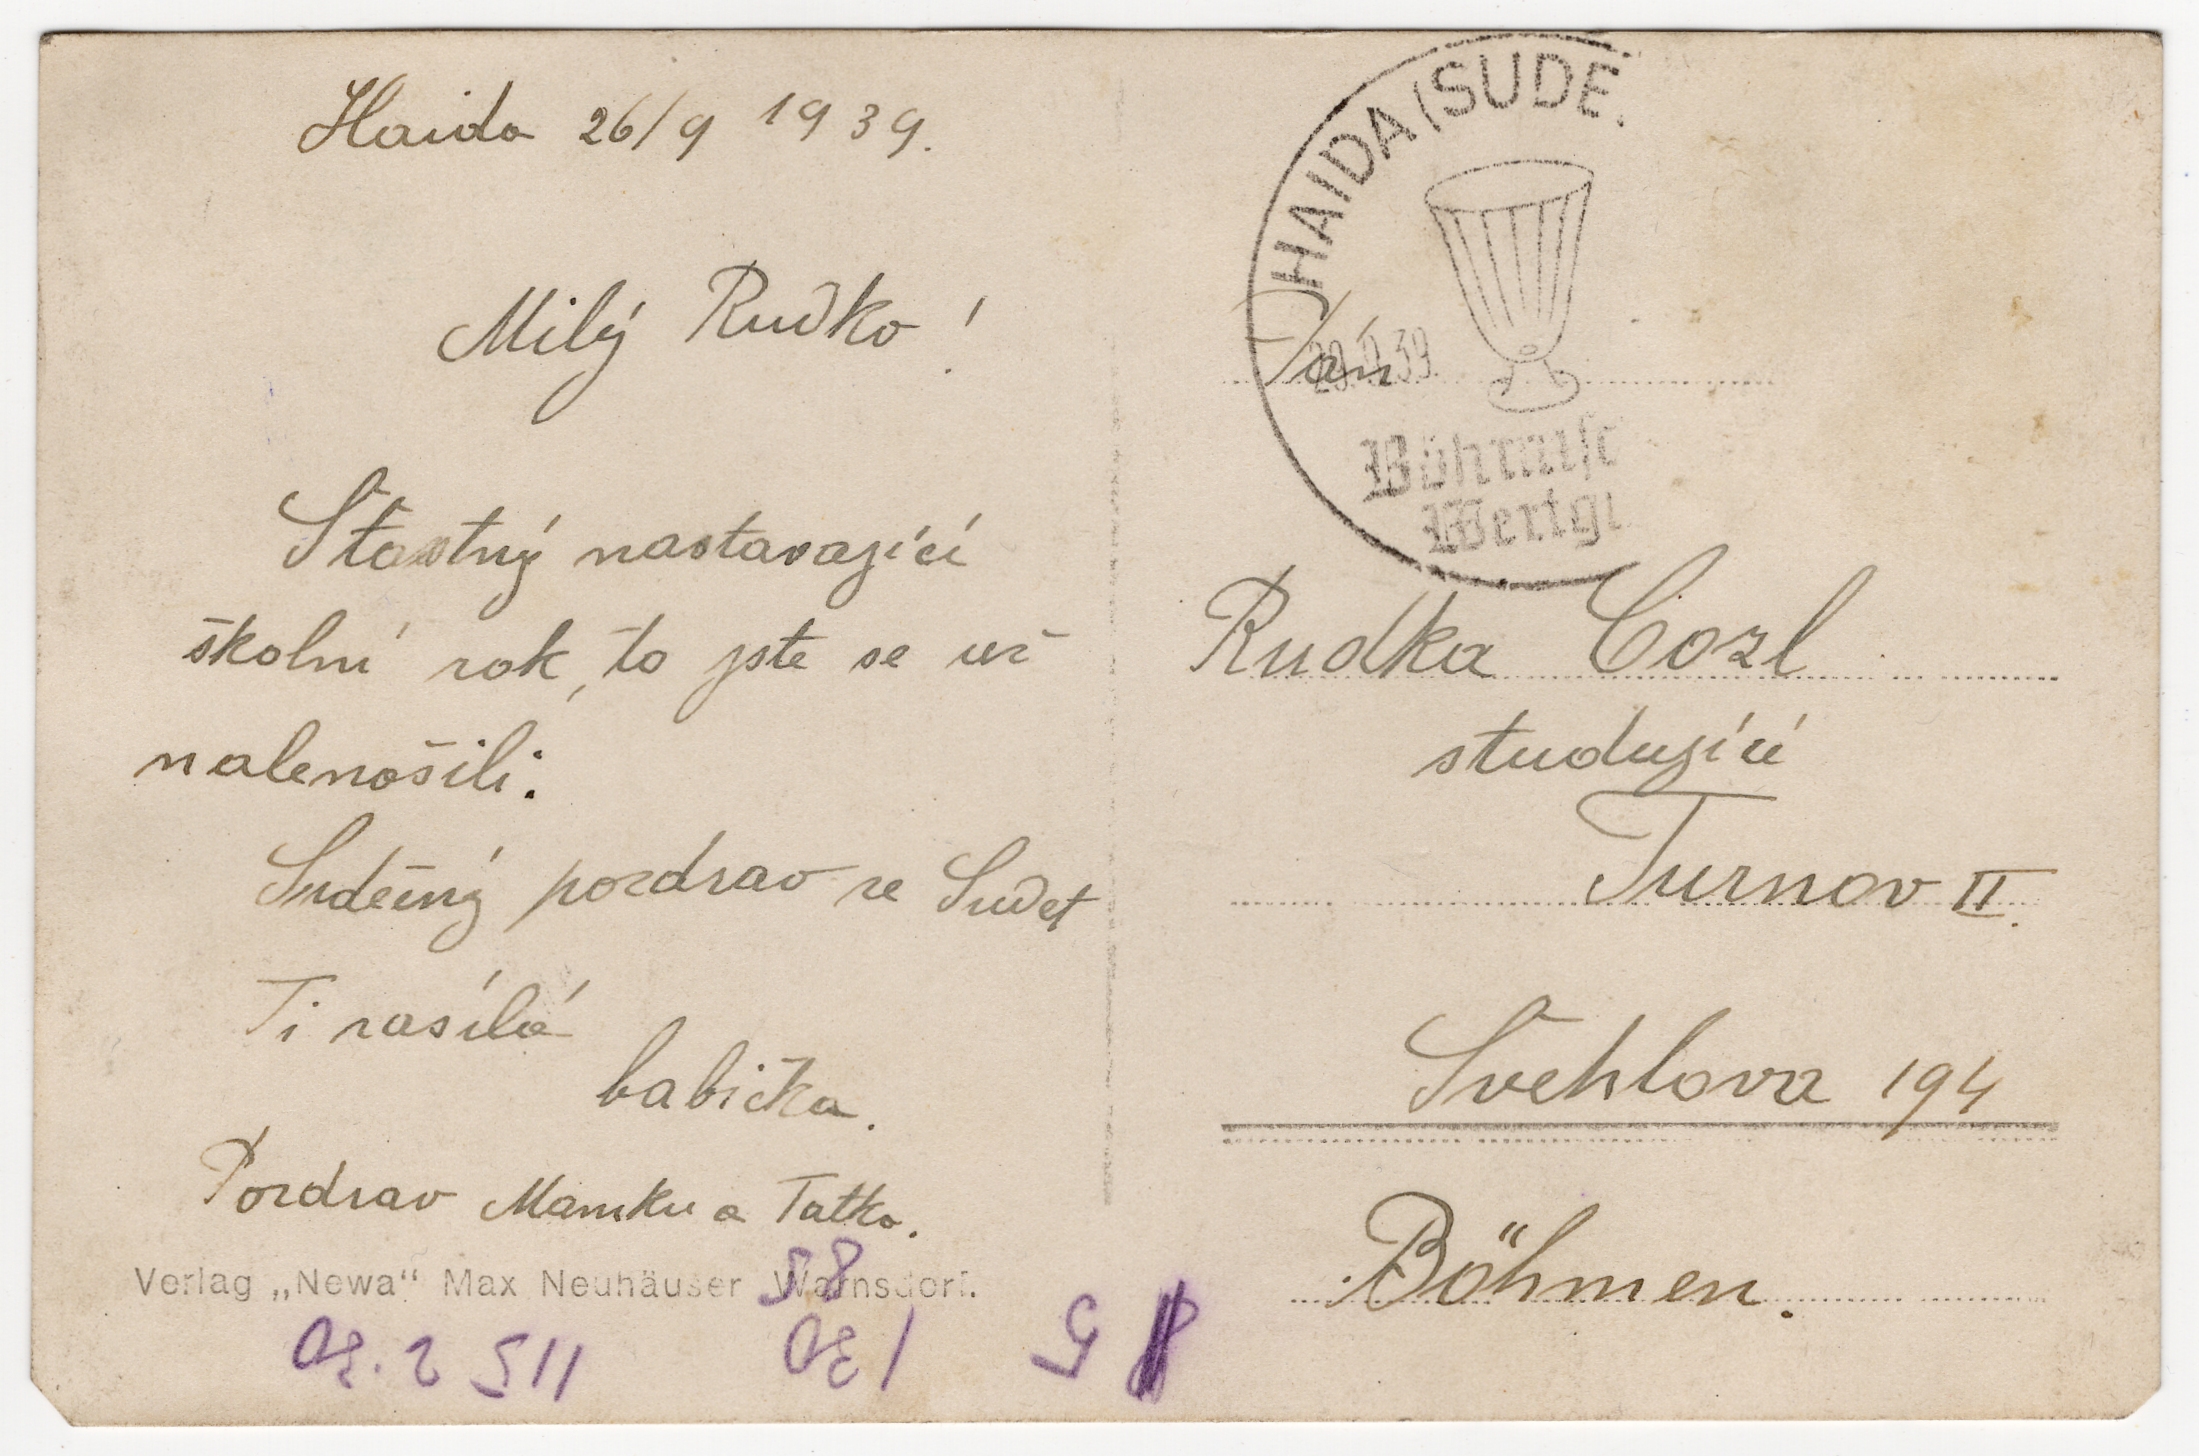 Haida 26/9 1939.
Milý Rudko!
Šťastný nastavající
školní rok, to jste se už
nalenošili.
Srdečný pozdrav ze Sudet
Ti zasílá
babička.
Pozdrav Mamku a Tatka.
Verlag „Newa“ Max Neuhäuser Warnsdorf.
58
115 2.30
130
5
HAIDA (SUDE.
39
Böhmisc
Wertgl
Pán
Rudka Cozl
studující
Turnov II.
Švehlova 194
Böhmen.